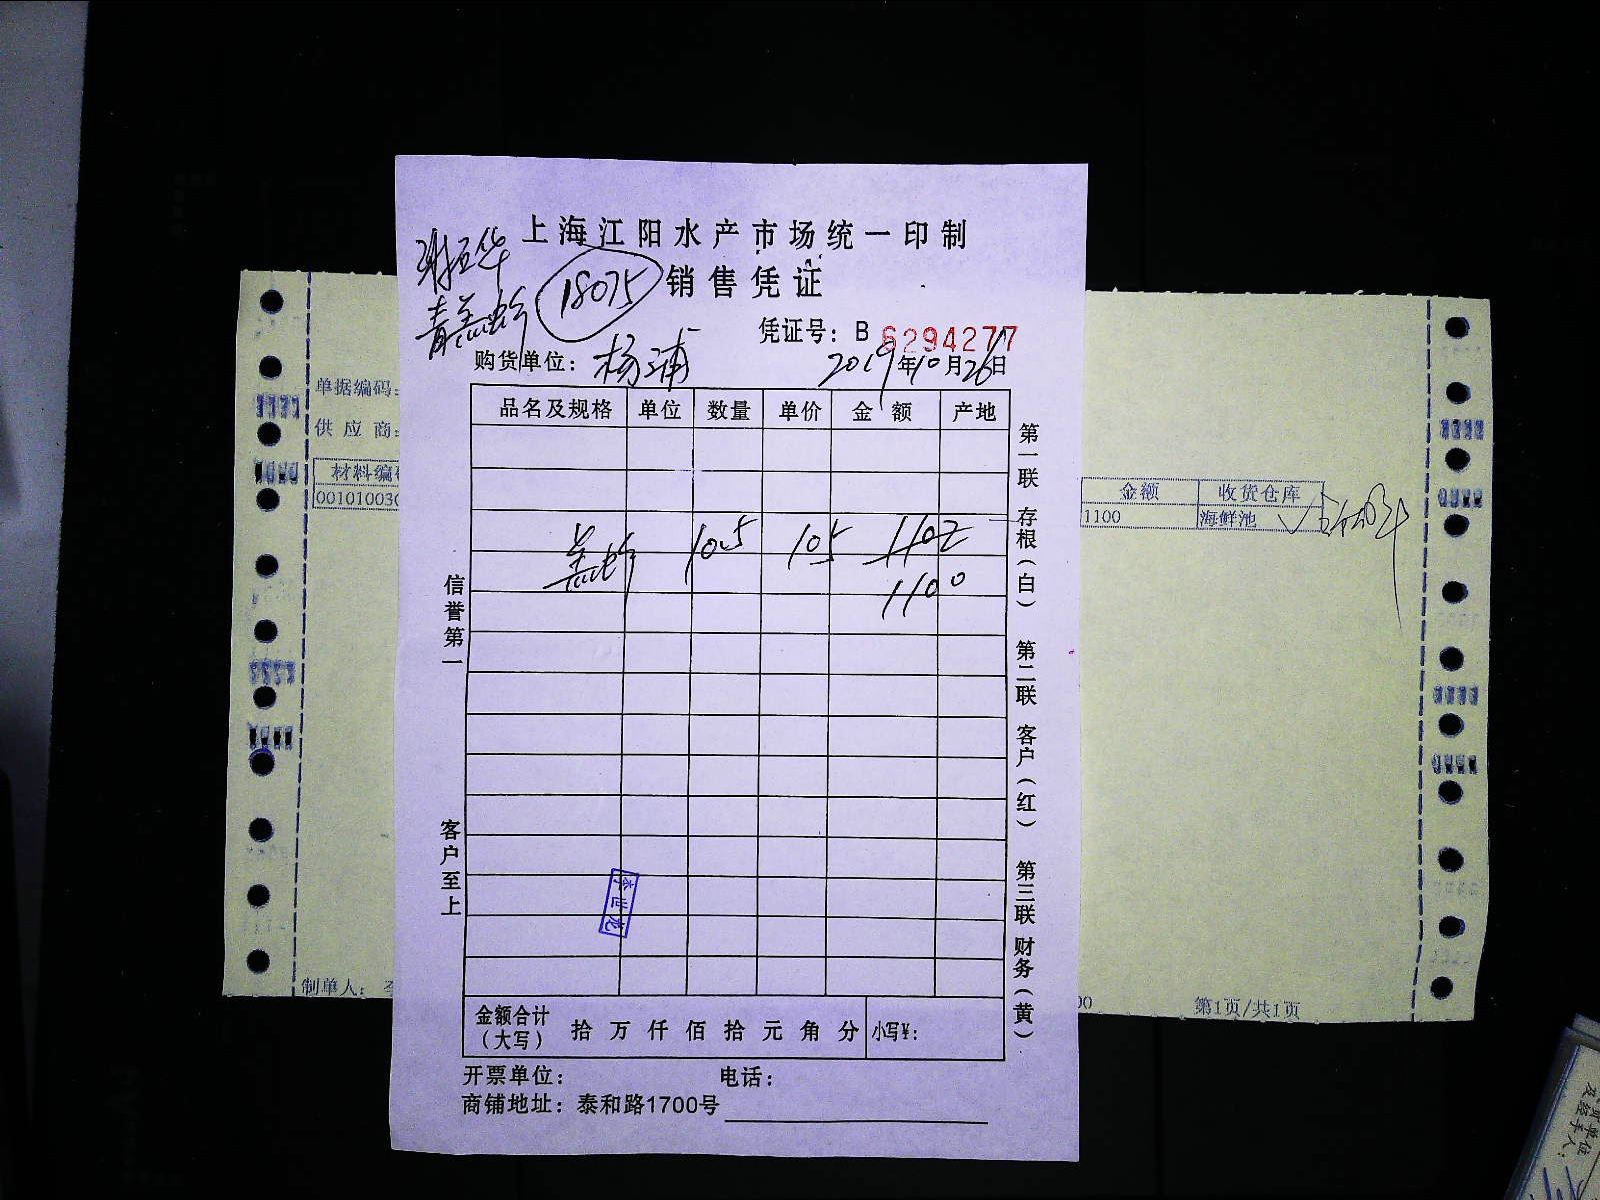 上海江阳水产市场统一印制
销售凭证
18075
凭证号：B 6294277
购货单位：杨浦
2019年10月26日
品名及规格 单位 数量 单价 金额 产地
10.5 105 1102
1100
信誉第一
客户至上
第一联 存根（白） 第二联 客户（红） 第三联 财务（黄）
李世龙
金额合计（大写） 拾 万 仟 佰 拾 元 角 分 小写¥：
开票单位： 电话：
商铺地址：泰和路1700号
单据编码：
供应商：
材料编
00101003
制单人：
金额 收货仓库
1100 海鲜池
第1页/共1页